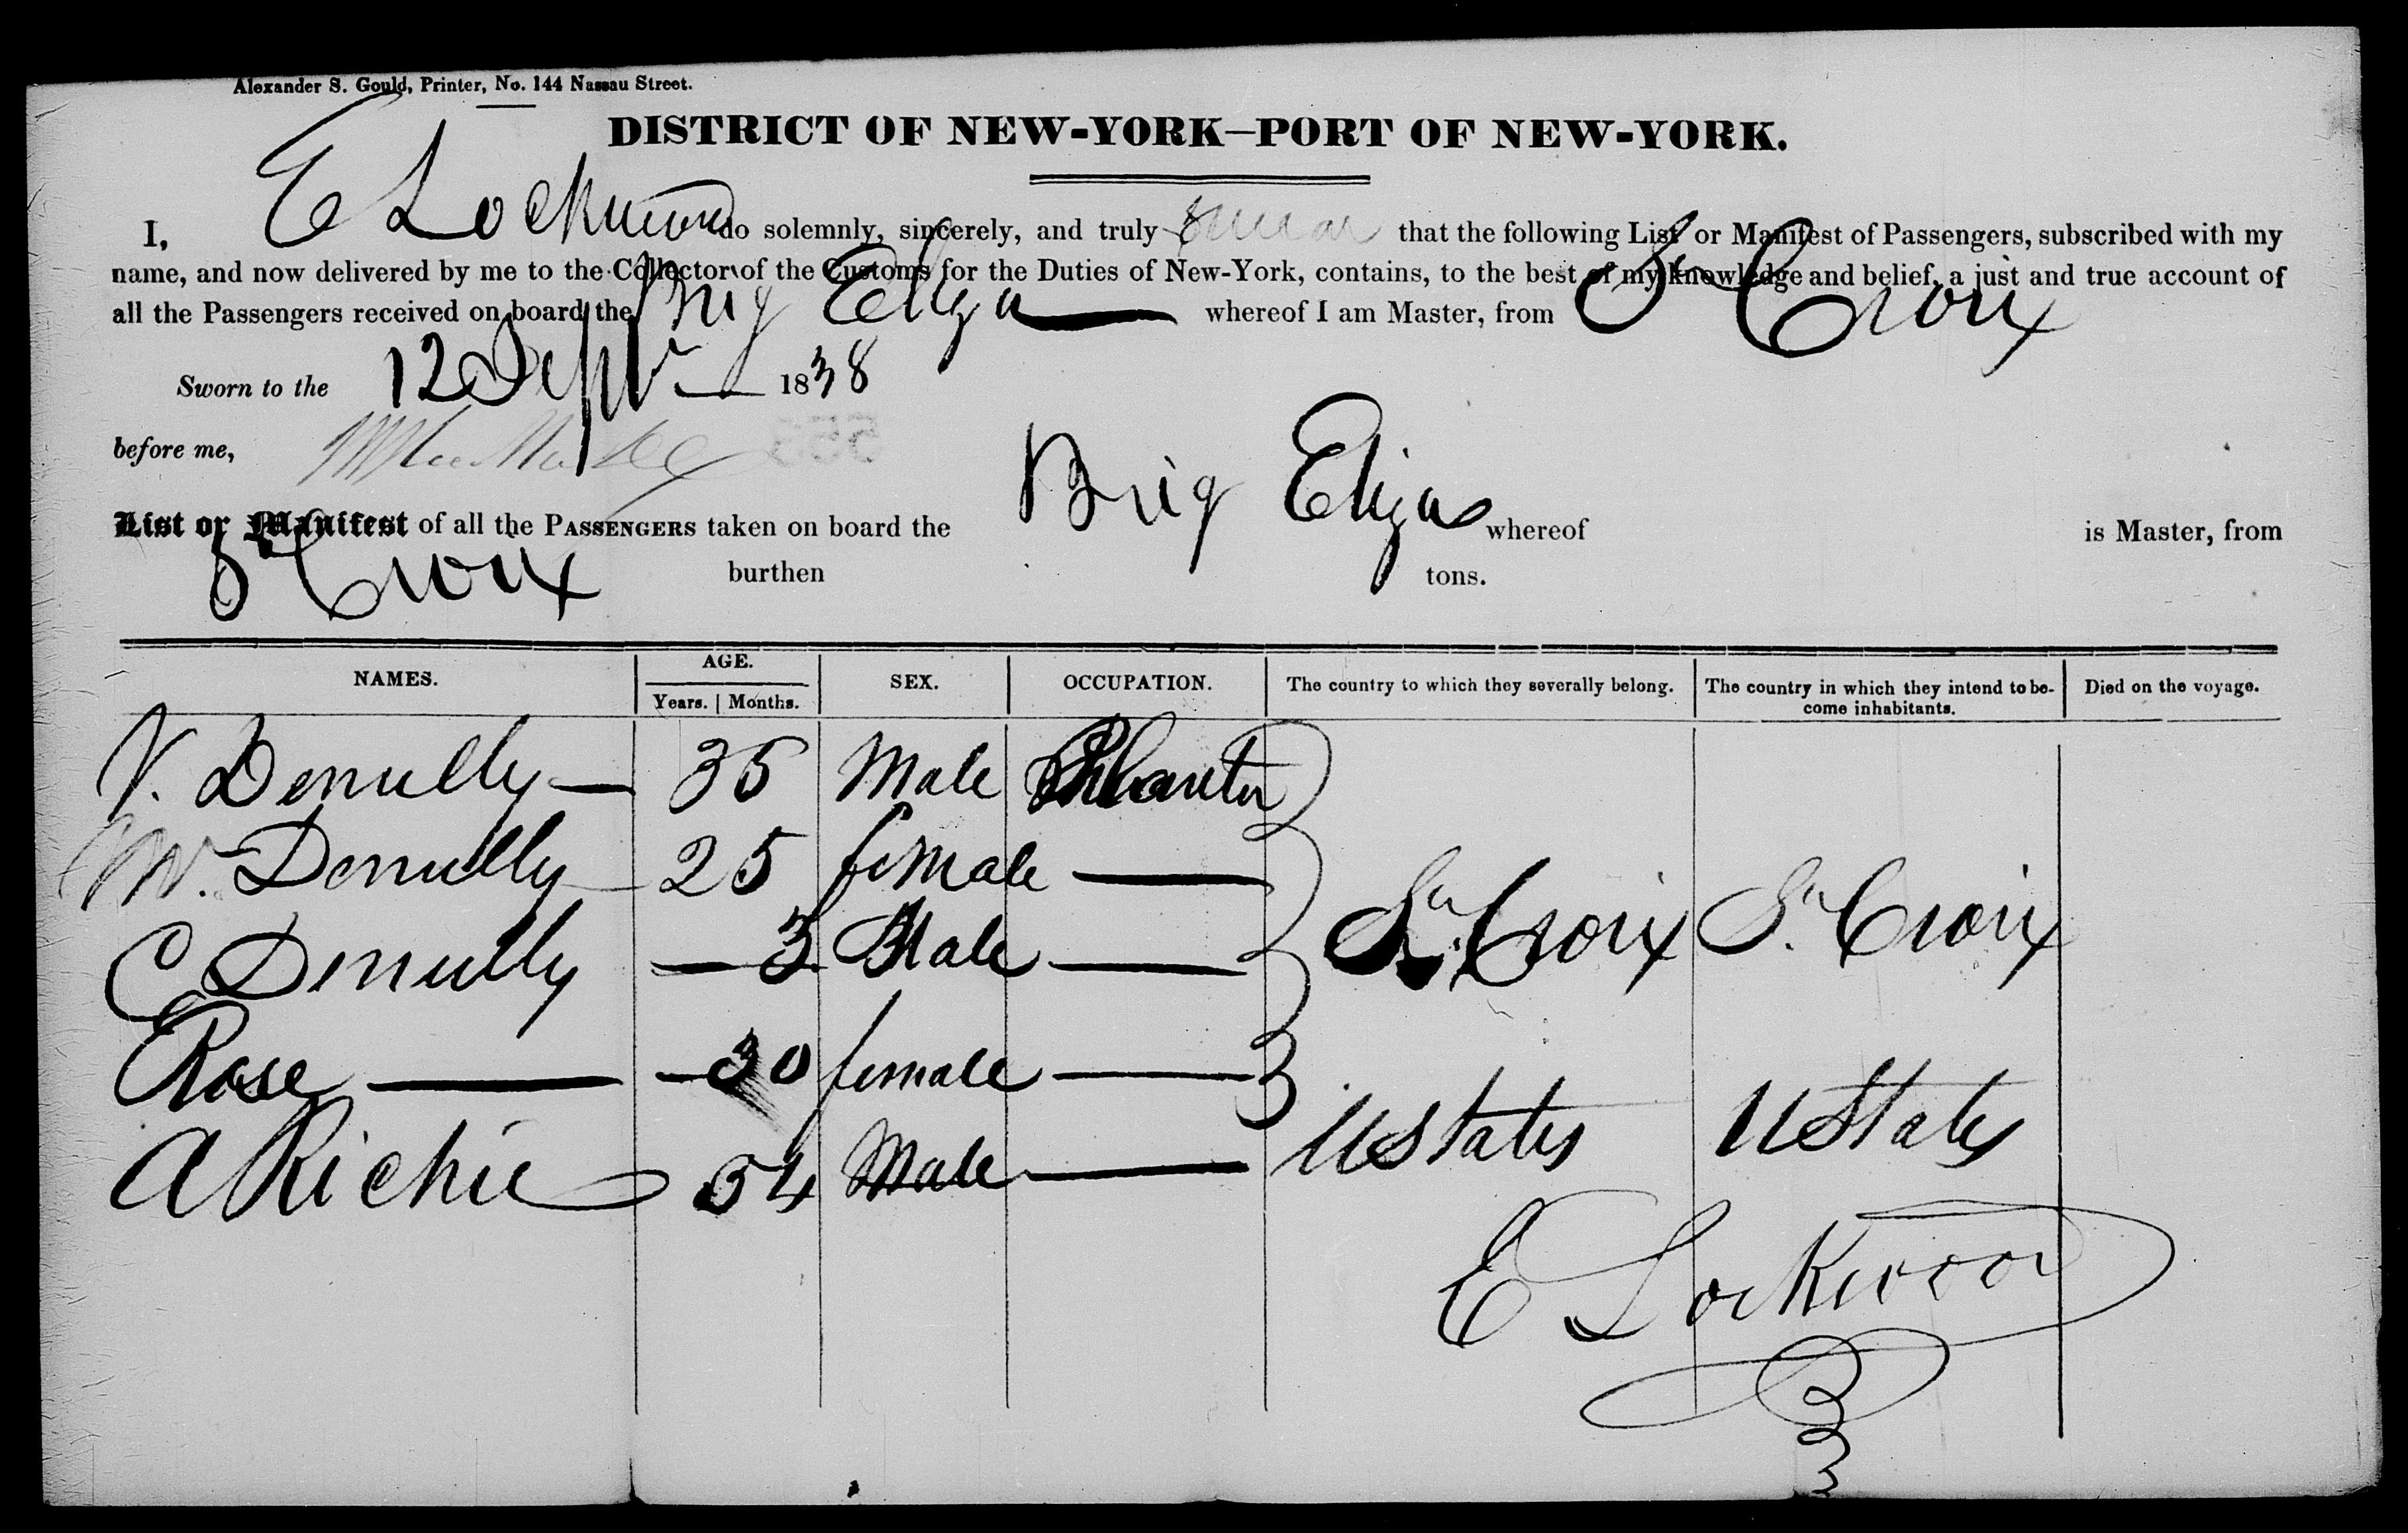 Alexander S. Gould, Printer, No. 144 Nassau Street.
DISTRICT OF NEW-YORK—PORT OF NEW-YORK.
I, E Lockwood do solemnly, sincerely, and truly swear that the following List or Manifest of Passengers, subscribed with my
name, and now delivered by me to the Collector of the Customs for the Duties of New-York, contains, to the best of my knowledge and belief, a just and true account of
all the Passengers received on board the Brig Eliza whereof I am Master, from St Croix
Sworn to the 12 Septr 1838
before me,
List or Manifest of all the PASSENGERS taken on board the Brig Eliza whereof is Master, from
St Croix burthen tons.
NAMES. AGE. SEX. OCCUPATION. The country to which they severally belong. The country in which they intend to be- Died on the voyage.
Years. Months. come inhabitants.
V. Denully — 35 Male Planter
M. Denully 25 female —
C Denully — 3 Male — St Croix St. Croix
Rose — 30 female —
A Richie 54 Male — UStates UStates
E Lockwood